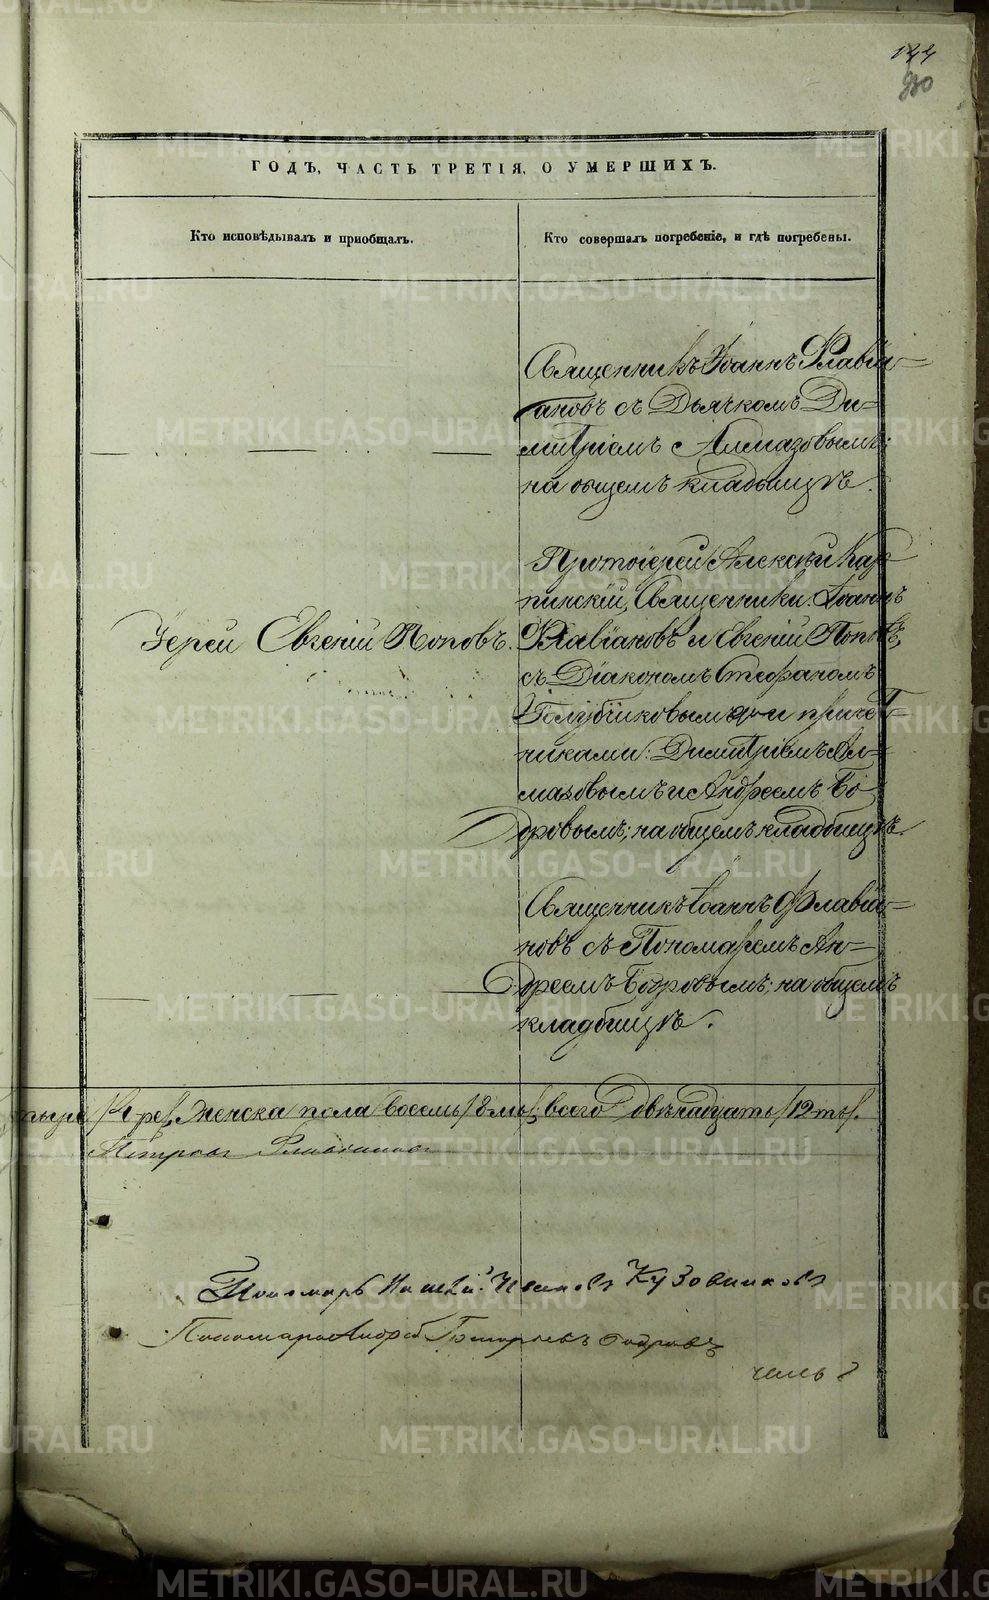 144
930
ГОДЪ, ЧАСТЬ ТРЕТІЯ, О УМЕРШИХЪ.
Кто исповѣдывалъ и приобщалъ.
Кто совершалъ погребеніе, и гдѣ погребены.
Священникъ Іоаннъ Флавіа-
новъ съ Дьячкомъ Ди-
митріемъ Алмазовымъ;
на общемъ кладбищѣ.
Іерей Евгеній Поповъ.
Протоіерей Алексѣй Кар-
пинскій, Священники: Іоаннъ
Флавіановъ и Евгеній Поповъ,
съ Діакономъ Стефаномъ
Голубчиковымъ и причет-
никами: Димитріемъ Ал-
мазовымъ и Андреемъ Бо-
дровымъ; на общемъ кладбищѣ.
Священникъ Іоаннъ Флавіа-
новъ съ Пономаремъ Ан-
дреемъ Бодровымъ; на общемъ
кладбищѣ.
тыре /4ре/, Женска пола восемь /8мь/; всего двѣнадцать /12ть/.
Петровъ Флавіановъ
Пономарь Кузовниковъ
Пономарь Андрей Григорьевъ Бодровъ
METRIKI.GASO-URAL.RU